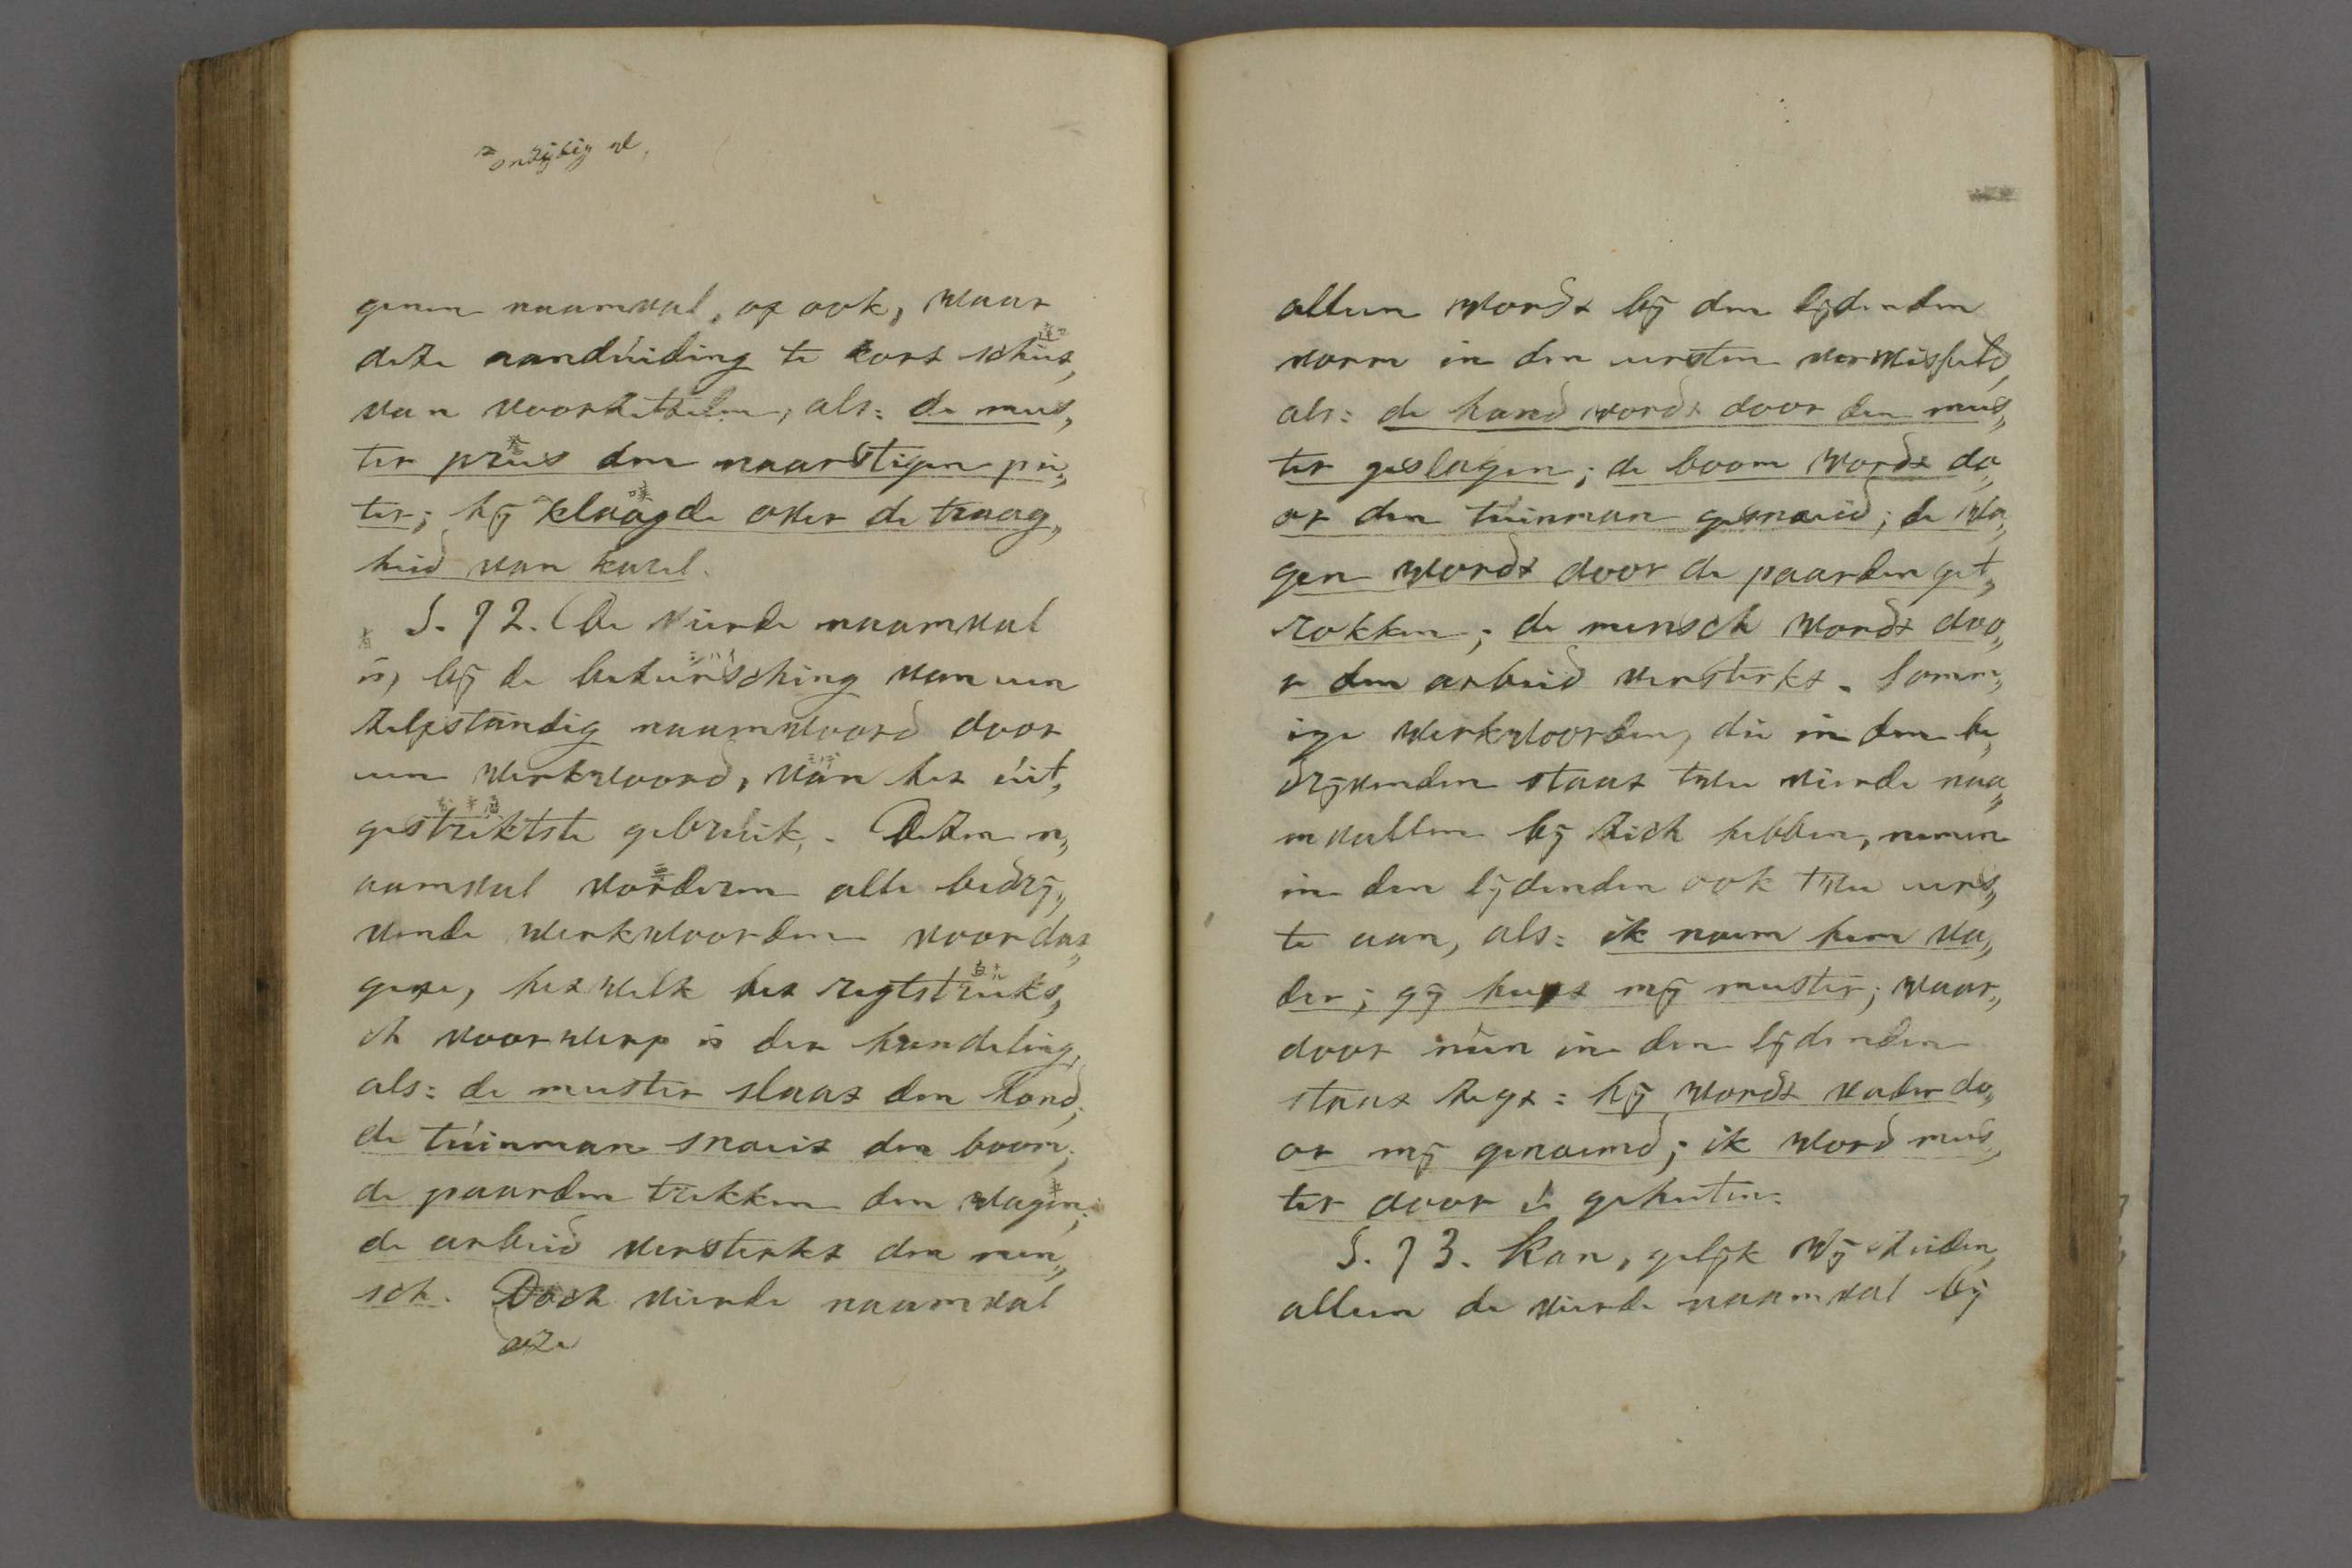 genen naamval, of ook, waar
deze aandúiding te kort schiet,
van voorzetselen, als: de mees„
ter prees den naarstigen pie„
ter; hij klaagde over de traag„
heid van karel.
§. 72. De vierde naamval
is, bij de beheersching van een
zelfstandig naamwoord door
een werkwoord, van het úit„
gestrektste gebrúik. Dezen n„
aamval vorderen alle bedrij„
vende werkwoorden voor dat„
gene, hetwelk het regtstreeks„
ch voorwerp is der handeling,
als: de meester slaat den hond;
de túinman snoeit den boom;
de paarden trekken den wagen;
de arbeid versterkt den men„
sch. Doch vierde naamval
deze
alleen wordt bij den lijdenden
vorm in den eersten verwisseld,
als: de hond wordt door den mees„
ter geslagen; de boom wordt do„
or den túinman gesnoeid; de wa„
gen wordt door de paarden get„
rokken; de mensch wordt doo„
r den arbeid versterkt. Somm„
ige werkwoorden, die in den be„
drijvenden staat twee vierde naa„
mvallen bij zich hebben, nemen
in den lijdenden ook twee eers„
te aan, als: ik noem hem va„
der; gij heet mij meester; waar„
door men in den lijdenden
staat zegt: hij wordt vader do„
or mij genoemd; ik word mees„
ter door ú geheeten.
§. 73. Kan, gelijk wij zeiden,
alleen de vierde naamval bij